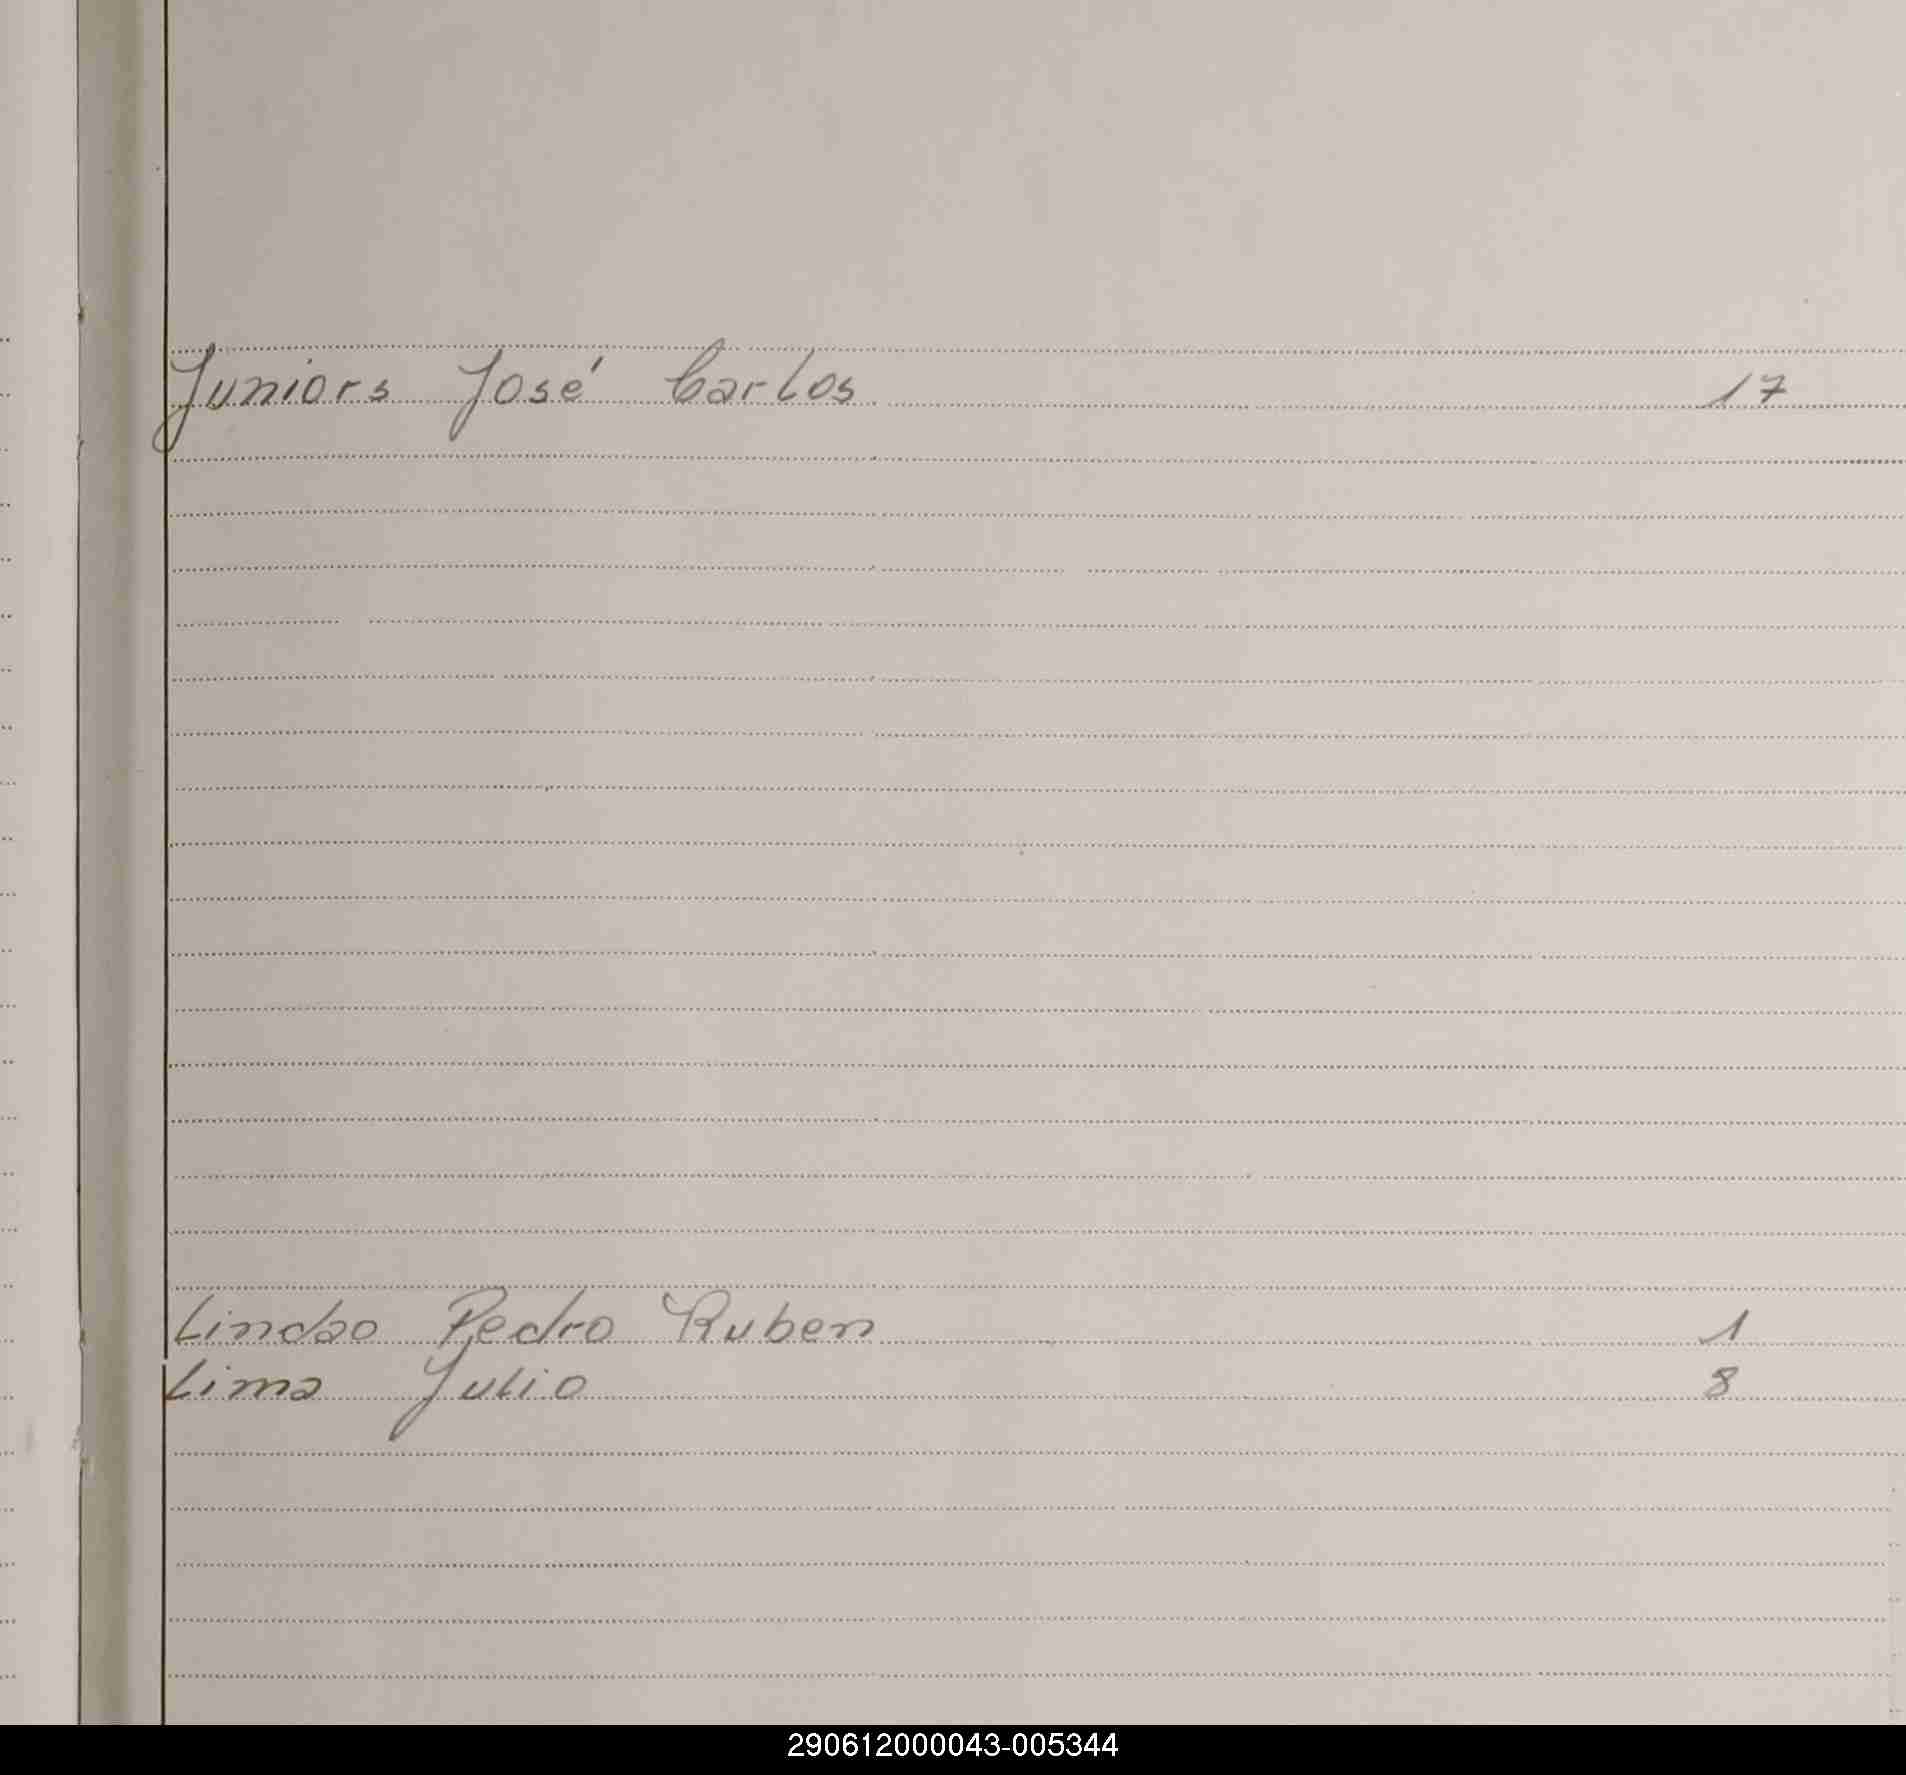 Juniors José Carlos 17
Lindao Pedro Ruben 1
Lima Julio 8
290612000043-005344